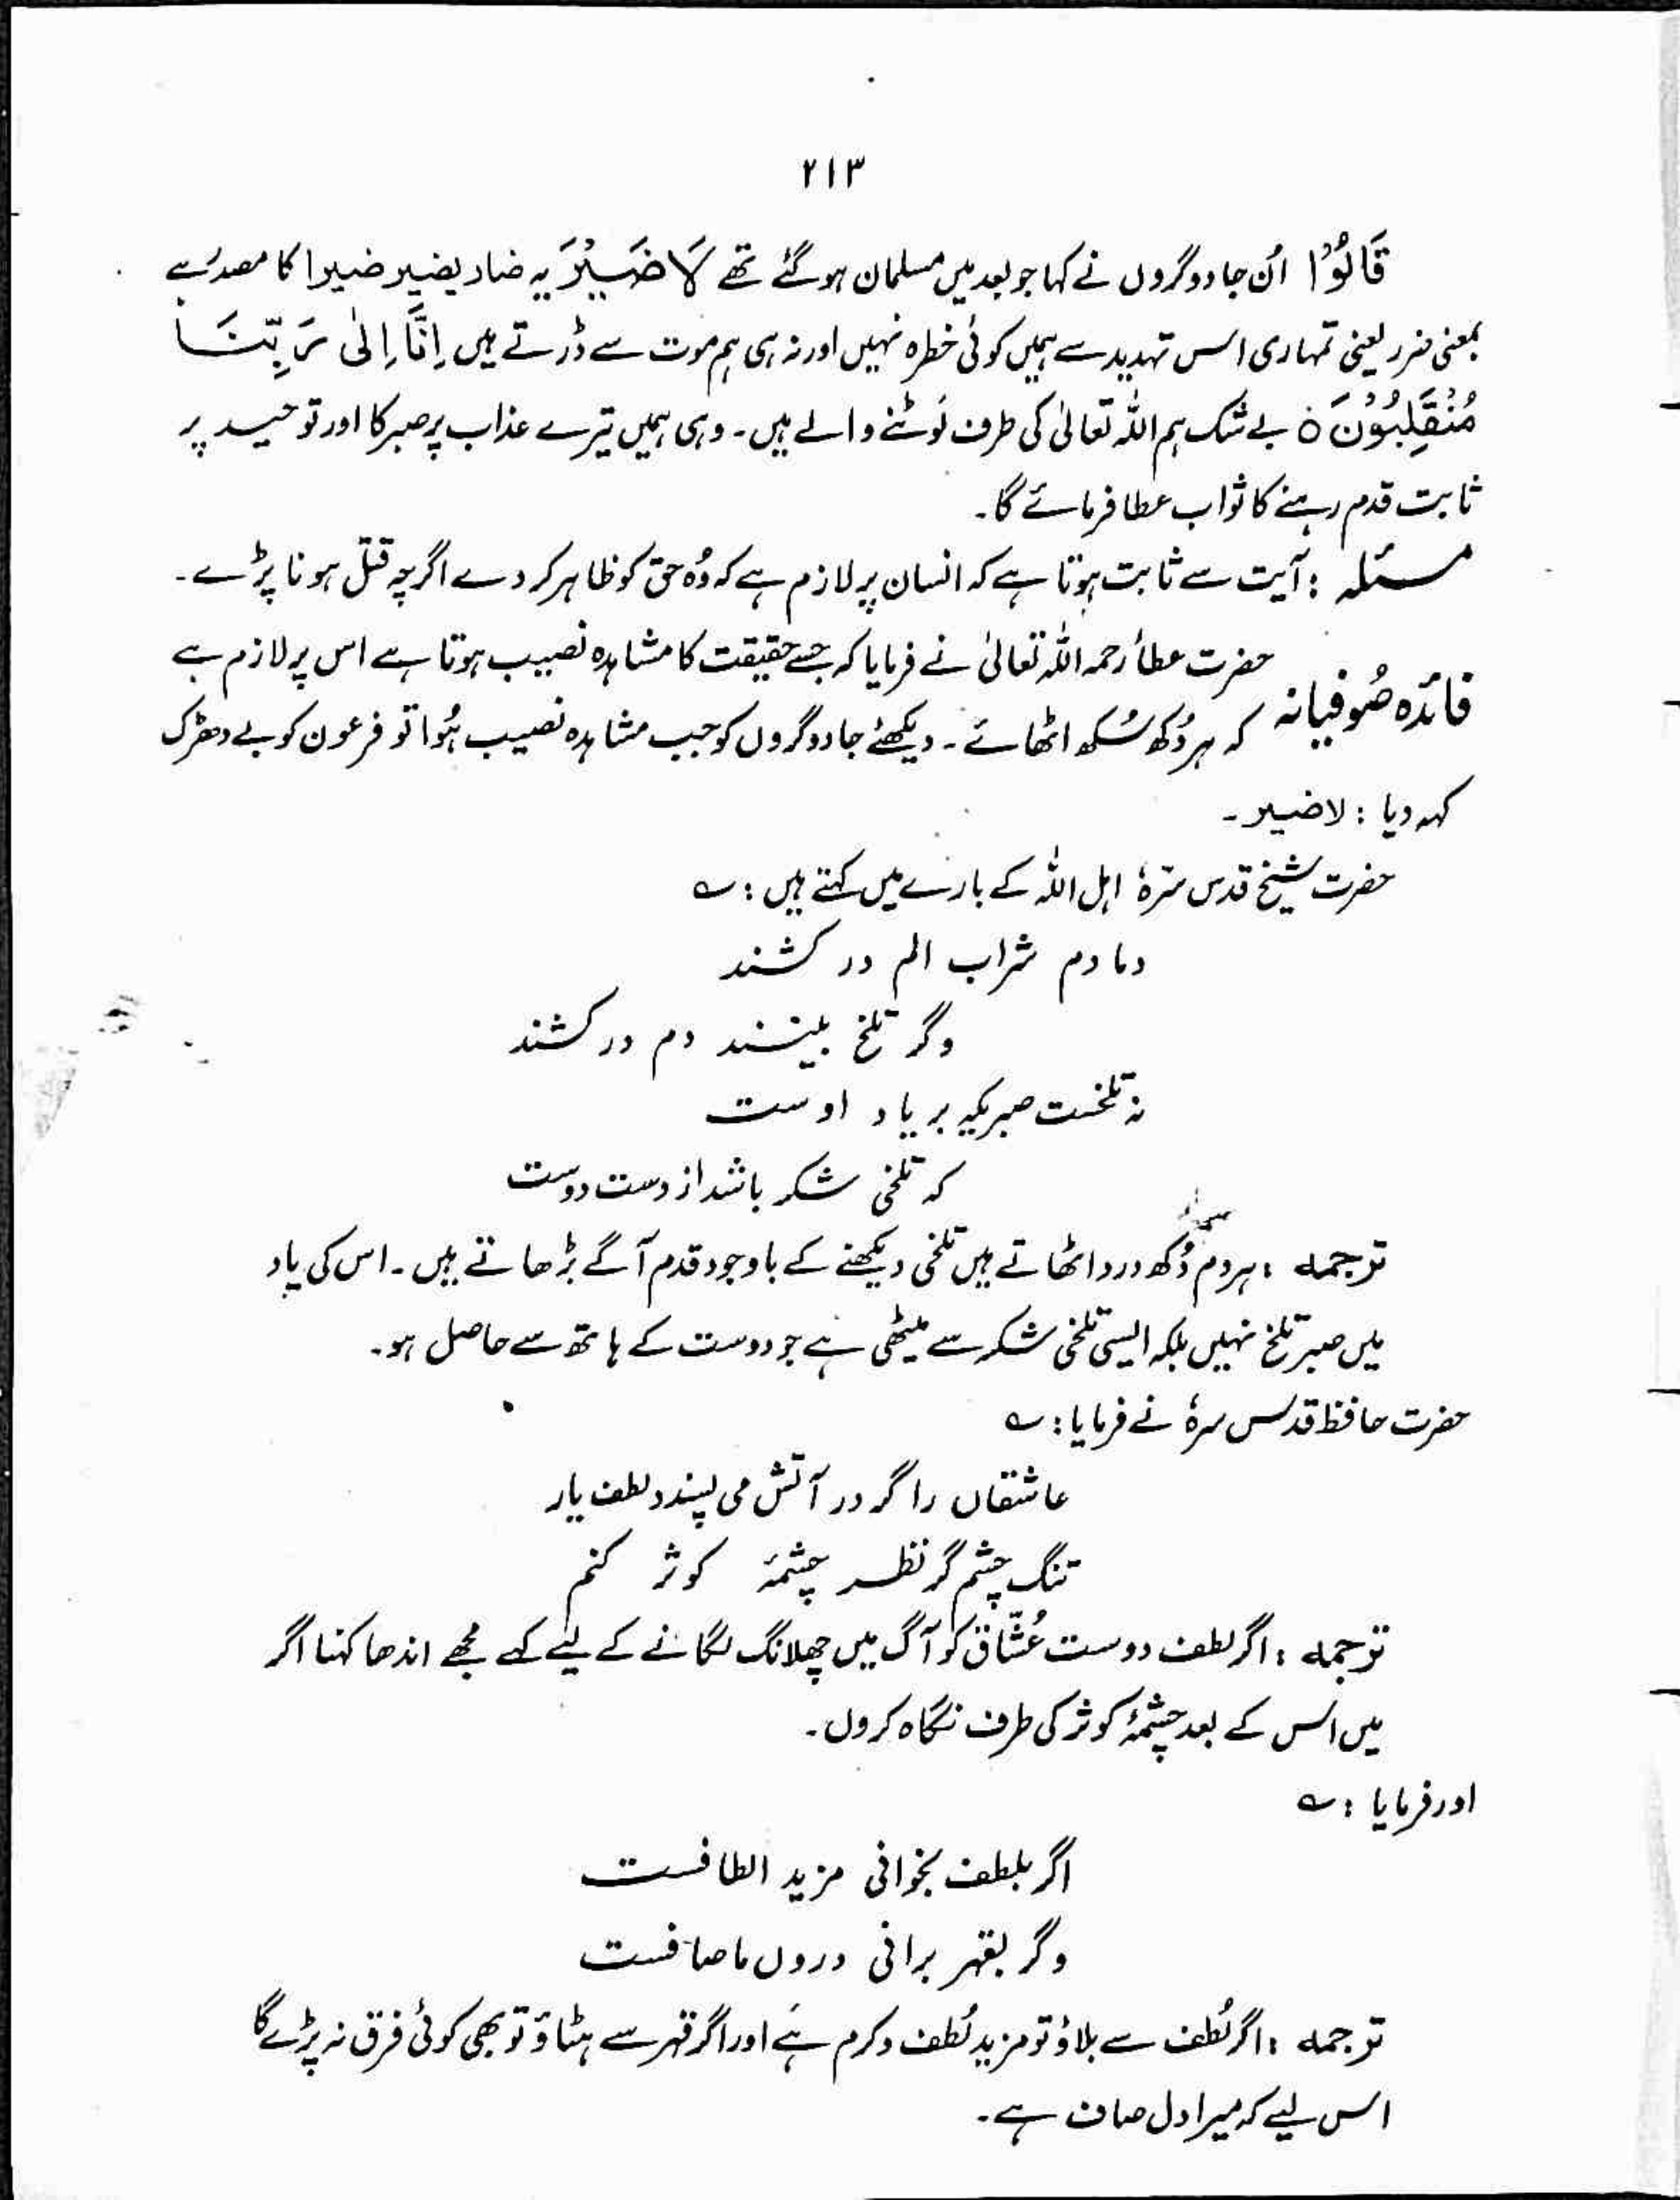 ۲۱۳
قَالُوْا اُن جادوگروں نے کہا جو بعد میں مسلمان ہو گئے تھے لَا ضَيْرَ یہ ضار یضیر ضیرا کا مصدر ہے
بمعنی ضرر یعنی تمہاری اس تہدید سے ہمیں کوئی خطرہ نہیں اور نہ ہی ہم موت سے ڈرتے ہیں اِنَّا اِلٰی رَبِّنَا
مُنْقَلِبُوْنَ ۝ بے شک ہم اللہ تعالیٰ کی طرف لَوٹنے والے ہیں۔ وہی ہمیں تیرے عذاب پر صبر کا اور توحید پر
ثابت قدم رہنے کا ثواب عطا فرمائے گا۔
مسئلہ : آیت سے ثابت ہوتا ہے کہ انسان پر لازم ہے کہ وُہ حق کو ظاہر کر دے اگرچہ قتل ہونا پڑے۔
حضرت عطأ رحمہ اللہ تعالیٰ نے فرمایا کہ جسے حقیقت کا مشاہدہ نصیب ہوتا ہے اس پر لازم ہے
فائدہ صُوفیانہ کہ ہر دُکھ سُکھ اٹھائے۔ دیکھئے جادوگروں کو جب مشاہدہ نصیب ہُوا تو فرعون کو بے دھڑک
کہہ دیا : لاضیر۔
حضرت شیخ قدس سرّہٗ اہل اللہ کے بارے میں کہتے ہیں : ؎
دمادم شراب الم در کشند
وگر تلخ بینند دم در کشند
نہ تلخست صبریکہ بر یاد اوست
کہ تلخی شکر باشد از دست دوست
ترجمہ : ہر دم دُکھ درد اٹھاتے ہیں تلخی دیکھنے کے باوجود قدم آگے بڑھاتے ہیں۔ اس کی یاد
میں صبر تلخ نہیں بلکہ ایسی تلخی شکر سے میٹھی ہے جو دوست کے ہاتھ سے حاصل ہو۔
حضرت حافظ قدس سرہٗ نے فرمایا : ؎
عاشقاں را گر در آتش می پسندد لطف یار
تنگ چشم گر نظر چشمۂ کوثر کنم
ترجمہ : اگر لطف دوست عُشّاق کو آگ میں چھلانگ لگانے کے لیے کہے مجھے اندھا کہنا اگر
میں اس کے بعد چشمۂ کوثر کی طرف نگاہ کروں۔
اور فرمایا : ؎
اگر بلطف بخوانی مزید الطافست
وگر بقہر برانی درون ما صافست
ترجمہ : اگر لُطف سے بلاؤ تو مزید لُطف و کرم ہے اور اگر قہر سے ہٹاؤ تو بھی کوئی فرق نہ پڑے گا
اس لیے کہ میرا دل صاف ہے۔